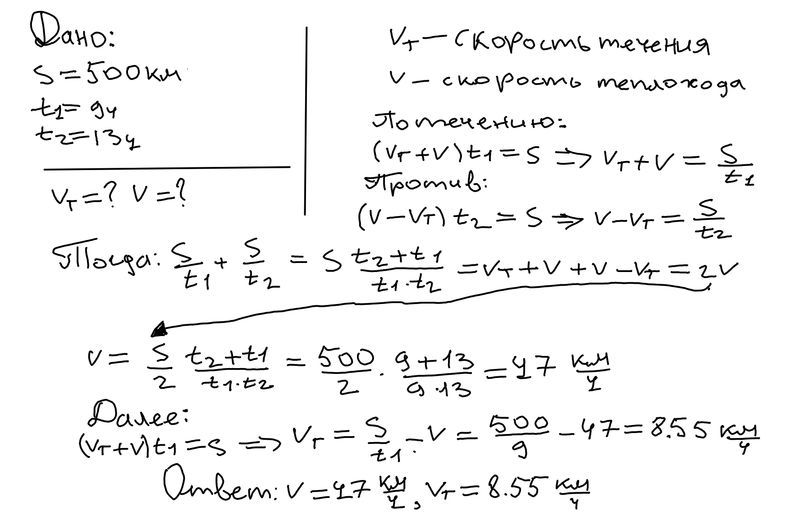 Дано:
S = 500 км
t1 = 9ч
t2 = 13ч
Vт = ? V = ?
Vт — скорость течения
V — скорость теплохода
По течению:
(Vт + V) t1 = S ⇒ Vт + V = S/t1
Против:
(V − Vт) t2 = S ⇒ V − Vт = S/t2
Тогда: S/t1 + S/t2 = S (t2 + t1)/(t1 · t2) = Vт + V + V − Vт = 2V
V = S/2 (t2 + t1)/(t1 · t2) = 500/2 · (9 + 13)/(9 · 13) = 47 км/ч
Далее:
(Vт + V) t1 = S ⇒ Vт = S/t1 − V = 500/9 − 47 = 8.55 км/ч
Ответ: V = 47 км/ч, Vт = 8.55 км/ч